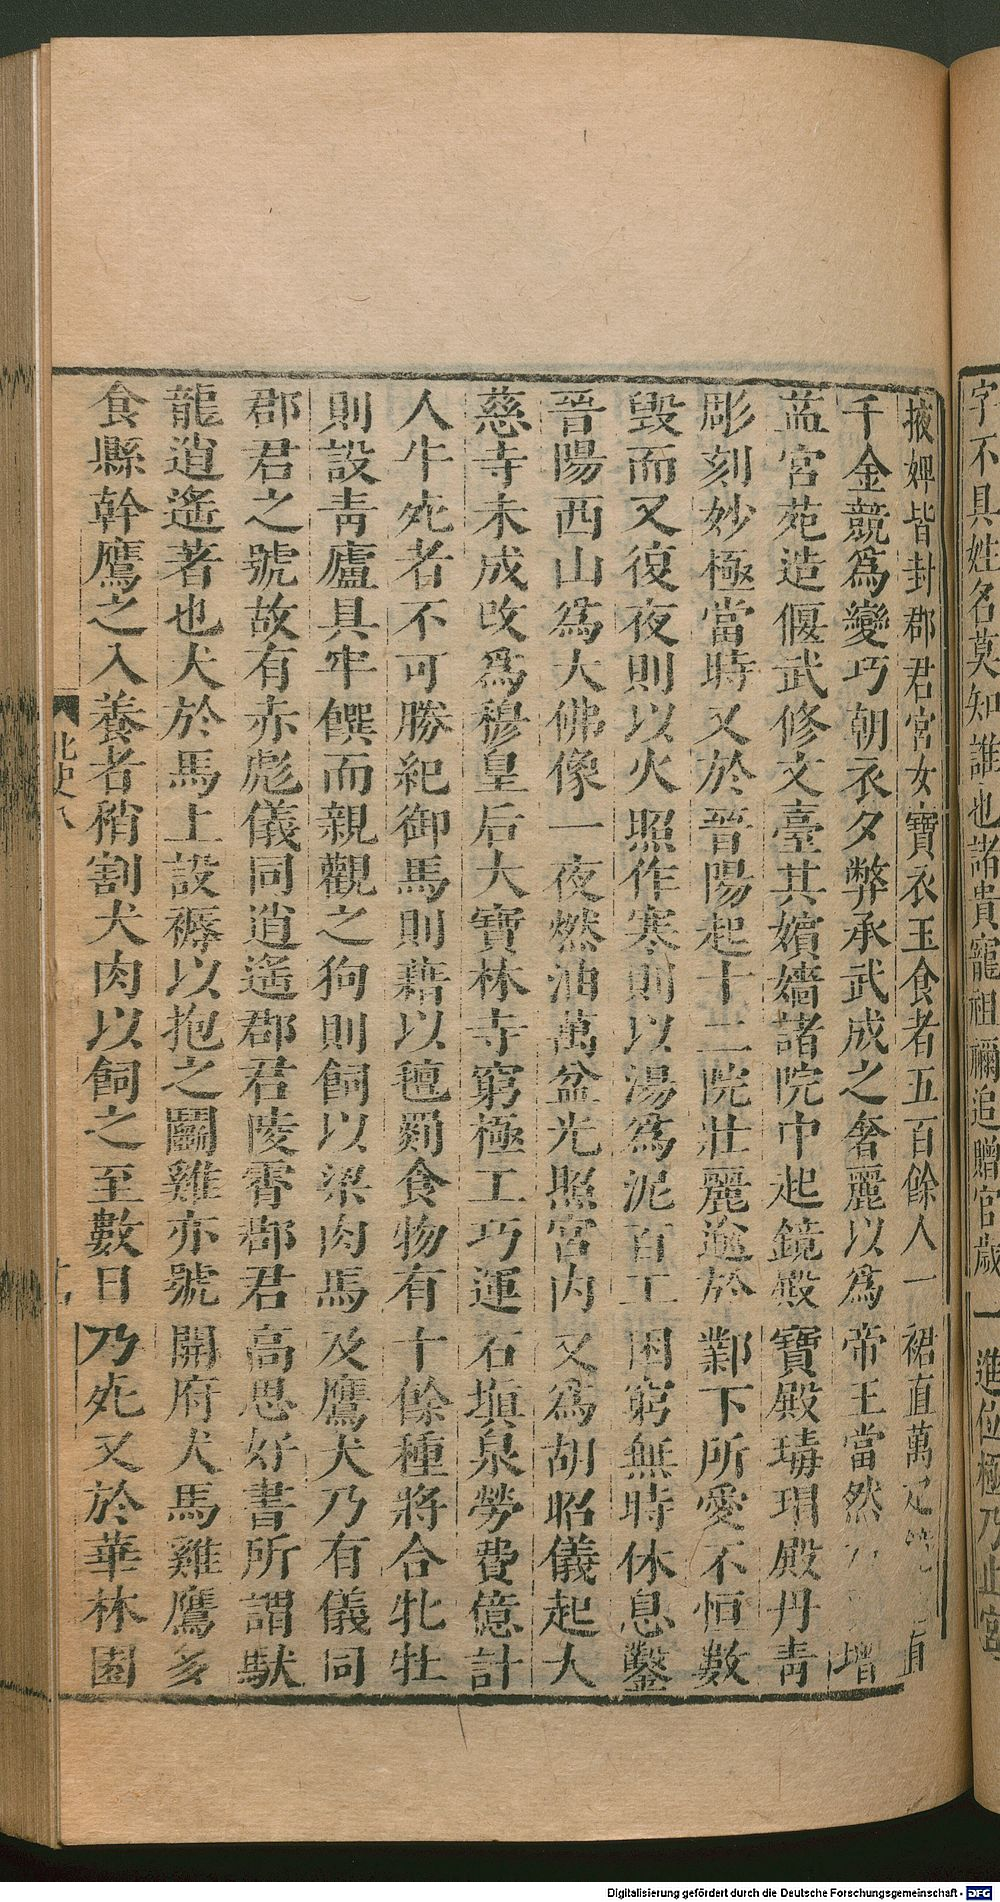 字不具姓名莫知誰也諸貴寵祖禰追贈官歲一進位極乃止宮
掖婢皆封郡君宮女寶衣玉食者五百餘人一裙直萬疋直
千金競爲變巧朝衣夕弊承武成之奢麗以爲帝王當然增
益宮苑造偃武修文臺其嬪嬙諸院中起鏡殿寶殿瑇瑁殿丹青
彫刻妙極當時又於晉陽起十二院壯麗逾於鄴下所愛不恒數
毀而又復夜則以火照作寒則以湯爲泥百工困窮無時休息鑿
晉陽西山爲大佛像一夜燃油萬盆光照宮內又爲胡昭儀起大
慈寺未成改爲穆皇后大寶林寺窮極工巧運石塡泉勞費億計
人牛死者不可勝紀御馬則藉以氊罽食物有十餘種將合牝牡
則設靑廬具牢饌而親觀之狗則飼以梁肉馬及鷹犬乃有儀同
郡君之號故有赤彪儀同逍遙郡君陵霄郡君高思好書所謂駃
龍逍遙著也犬於馬上設褥以抱之鬭雞亦號開府犬馬雞鷹多
食縣幹鷹之入養者稍割犬肉以飼之至數日乃死又於華林園
北史八
Digitalisierung gefördert durch die Deutsche Forschungsgemeinschaft - DFG